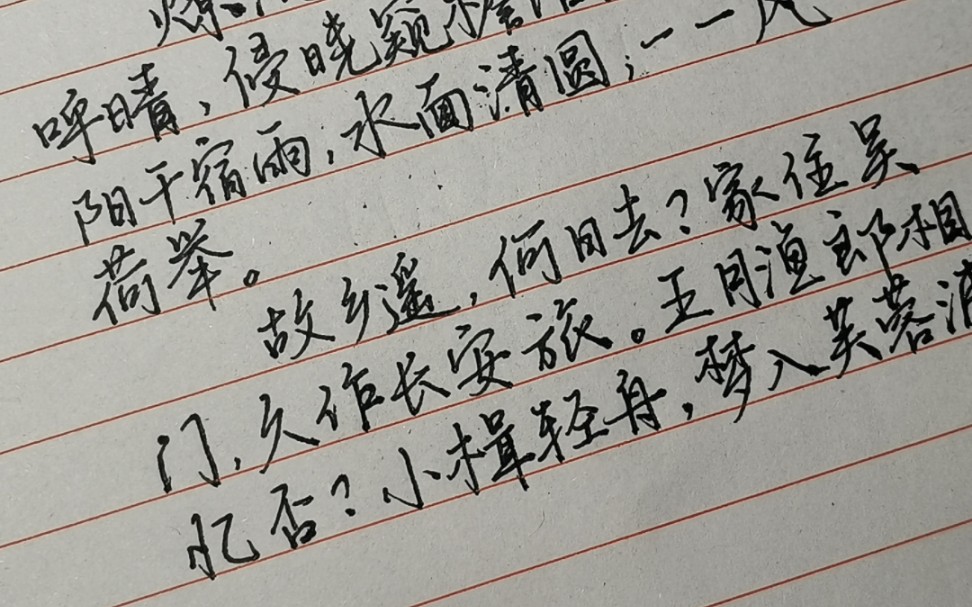 呼晴，侵晓窥檐
阳干宿雨，水面清圆，一一风
荷举。
故乡遥，何日去？家住吴
门，久作长安旅。五月渔郎相
忆否？小楫轻舟，梦入芙蓉浦